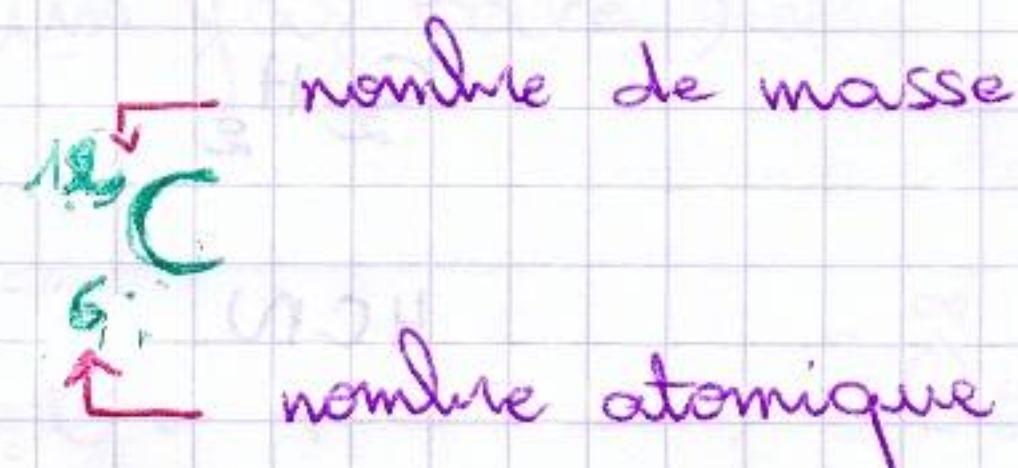 nombre de masse
12
C
6
nombre atomique